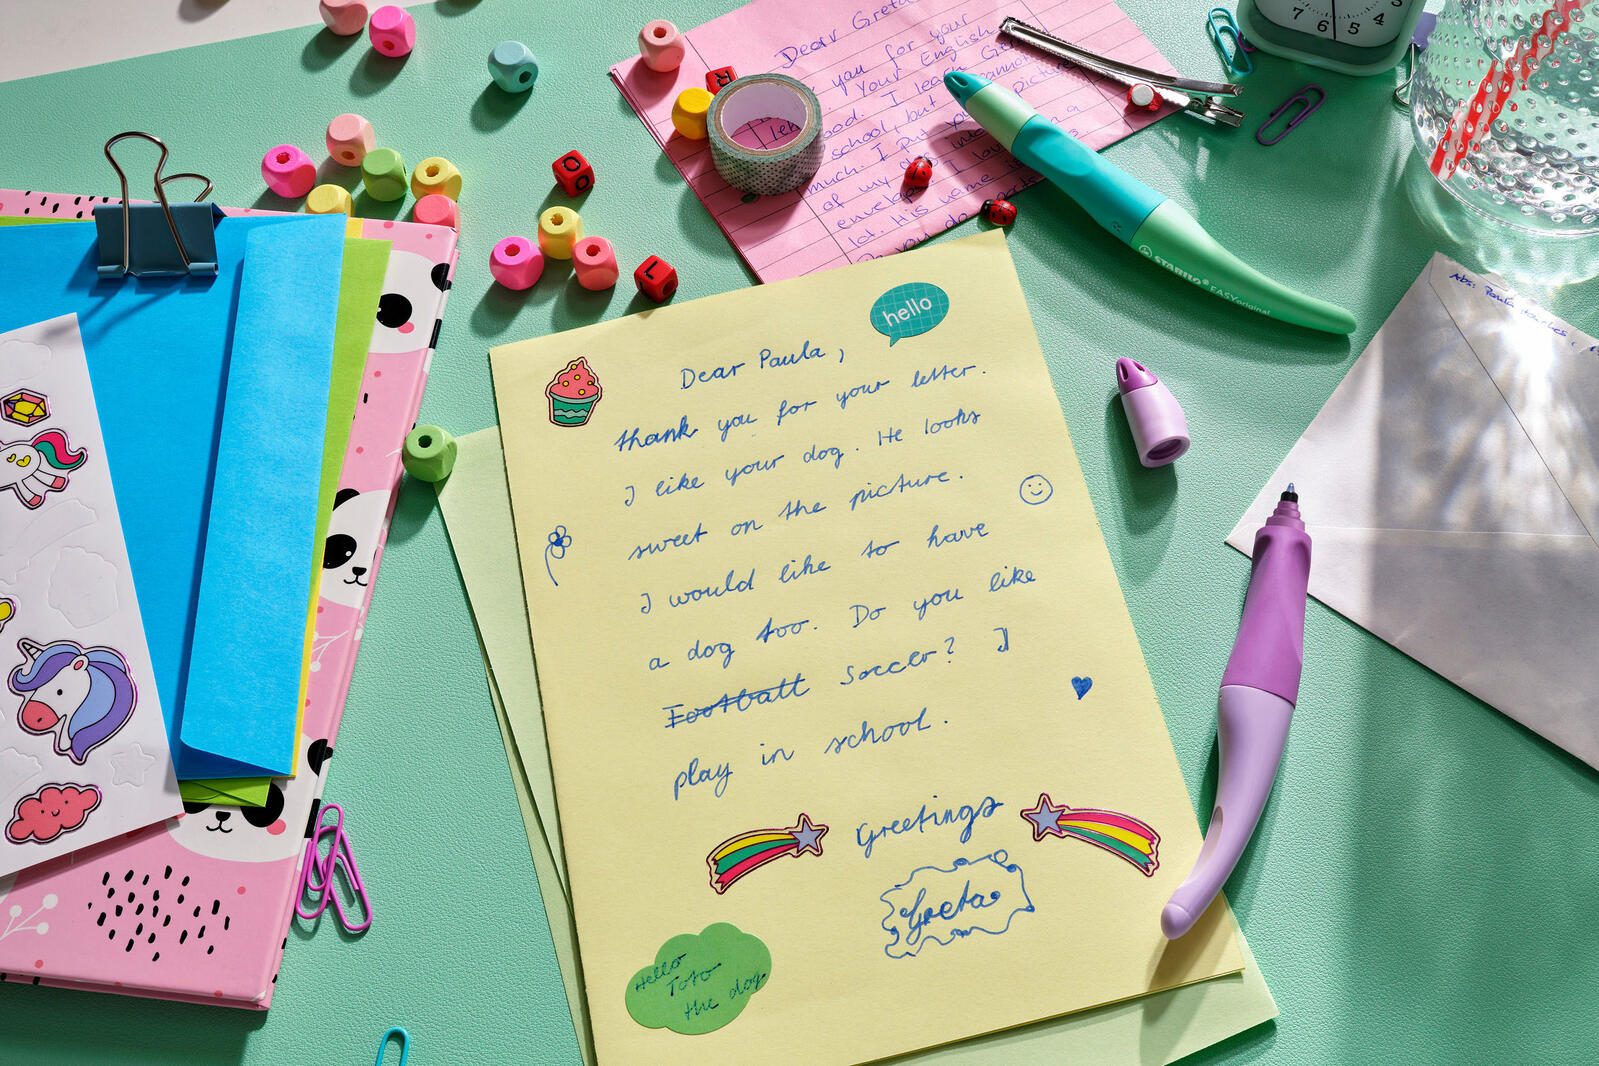 Dear Greta
you for your
Your English
good. I learn
school, but cannot
much. I put your picture
of my dog into
envelope. I lov
lot. His name is
you do
7
6
5
4
3
R
O
L
STABILO® EASYoriginal
Abs: Paula
hello
Dear Paula,
thank you for your letter.
I like your dog. He looks
sweet on the picture.
I would like to have
a dog too. Do you like
Football Soccer? I
play in school.
Greetings
Greta
Hello
Toto
the dog